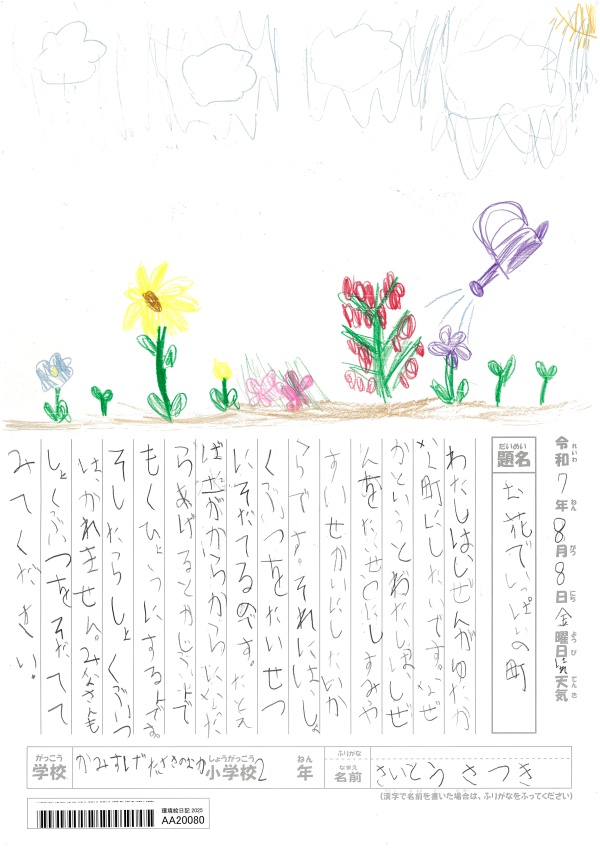 令和7年8月8日金曜日 天気
れいわ ねん がつ にち ようび てんき
だいめい
題名 お花でいっぱいの町
わたしは、しぜんがゆたか
な町にしたいです。なぜ
かというとわたしは、しぜ
んをたいせつにしすみや
すいせかいにしたいか
らです。それには、しょ
くぶつをたいせつ
にそだてるのです。たとえ
ばお花がからからになった
らあげるとかじょうで
もくひょうにするです。
そしたらしょくぶつ
は、かれません。みなさんも
しょくぶつをそだてて
みてください。
がっこう
学校
しょうがっこう
小学校2
ねん
年
ふりがな
なまえ
名前 さいとう さつき
(漢字で名前を書いた場合は、ふりがなをふってください)
環境絵日記 2025
AA20080